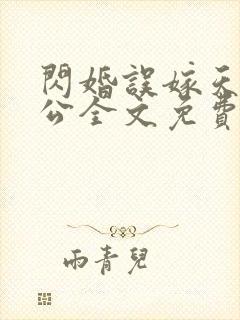 閃婚誤嫁天
公全文免費
雨青兒